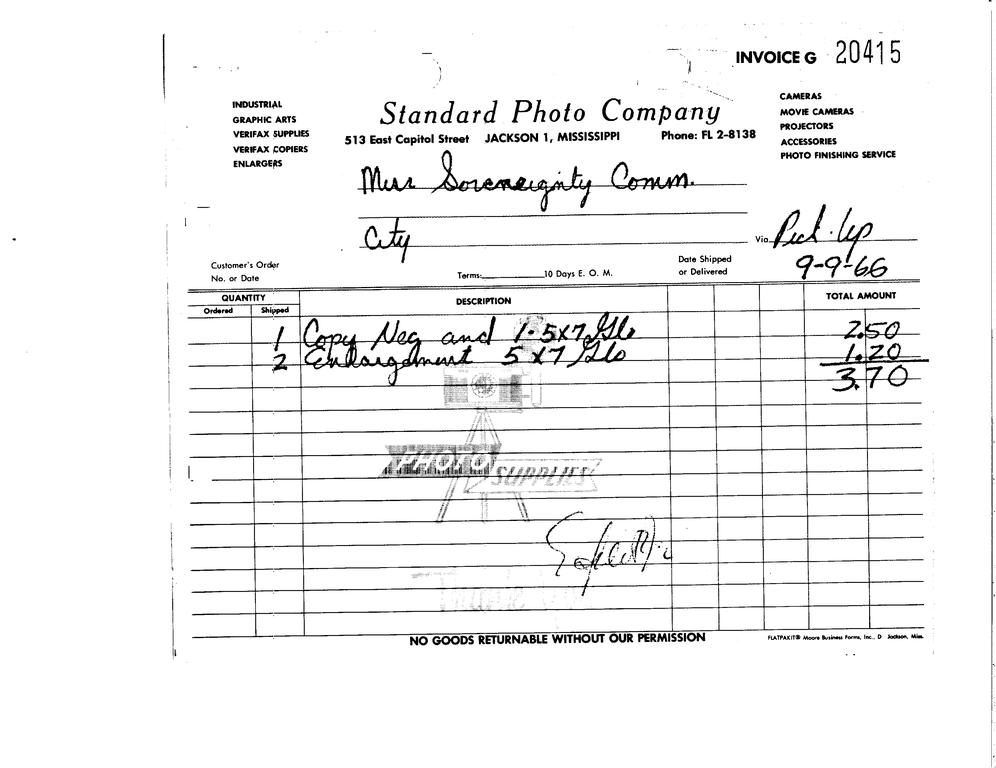 INVOICE G 20415
INDUSTRIAL
GRAPHIC ARTS
VERIFAX SUPPLIES
VERIFAX COPIERS
ENLARGERS
Standard Photo Company
513 East Capitol Street JACKSON 1, MISSISSIPPI Phone: FL 2-8138
CAMERAS
MOVIE CAMERAS
PROJECTORS
ACCESSORIES
PHOTO FINISHING SERVICE
Miss Sovereignty Comm.
City
Via Pick-Up
Customer's Order
No. or Date
Terms: 10 Days E. O. M.
Date Shipped
or Delivered
9-9-66
QUANTITY DESCRIPTION TOTAL AMOUNT
Ordered Shipped
1 Copy Neg and 1-5x7 Glo 2.50
2 Enlargement 5x7 Glo 1.20
3.70
PHOTO
SUPPLIES
NO GOODS RETURNABLE WITHOUT OUR PERMISSION
FLATPAKIT® Moore Business Forms, Inc., D Jackson, Miss.